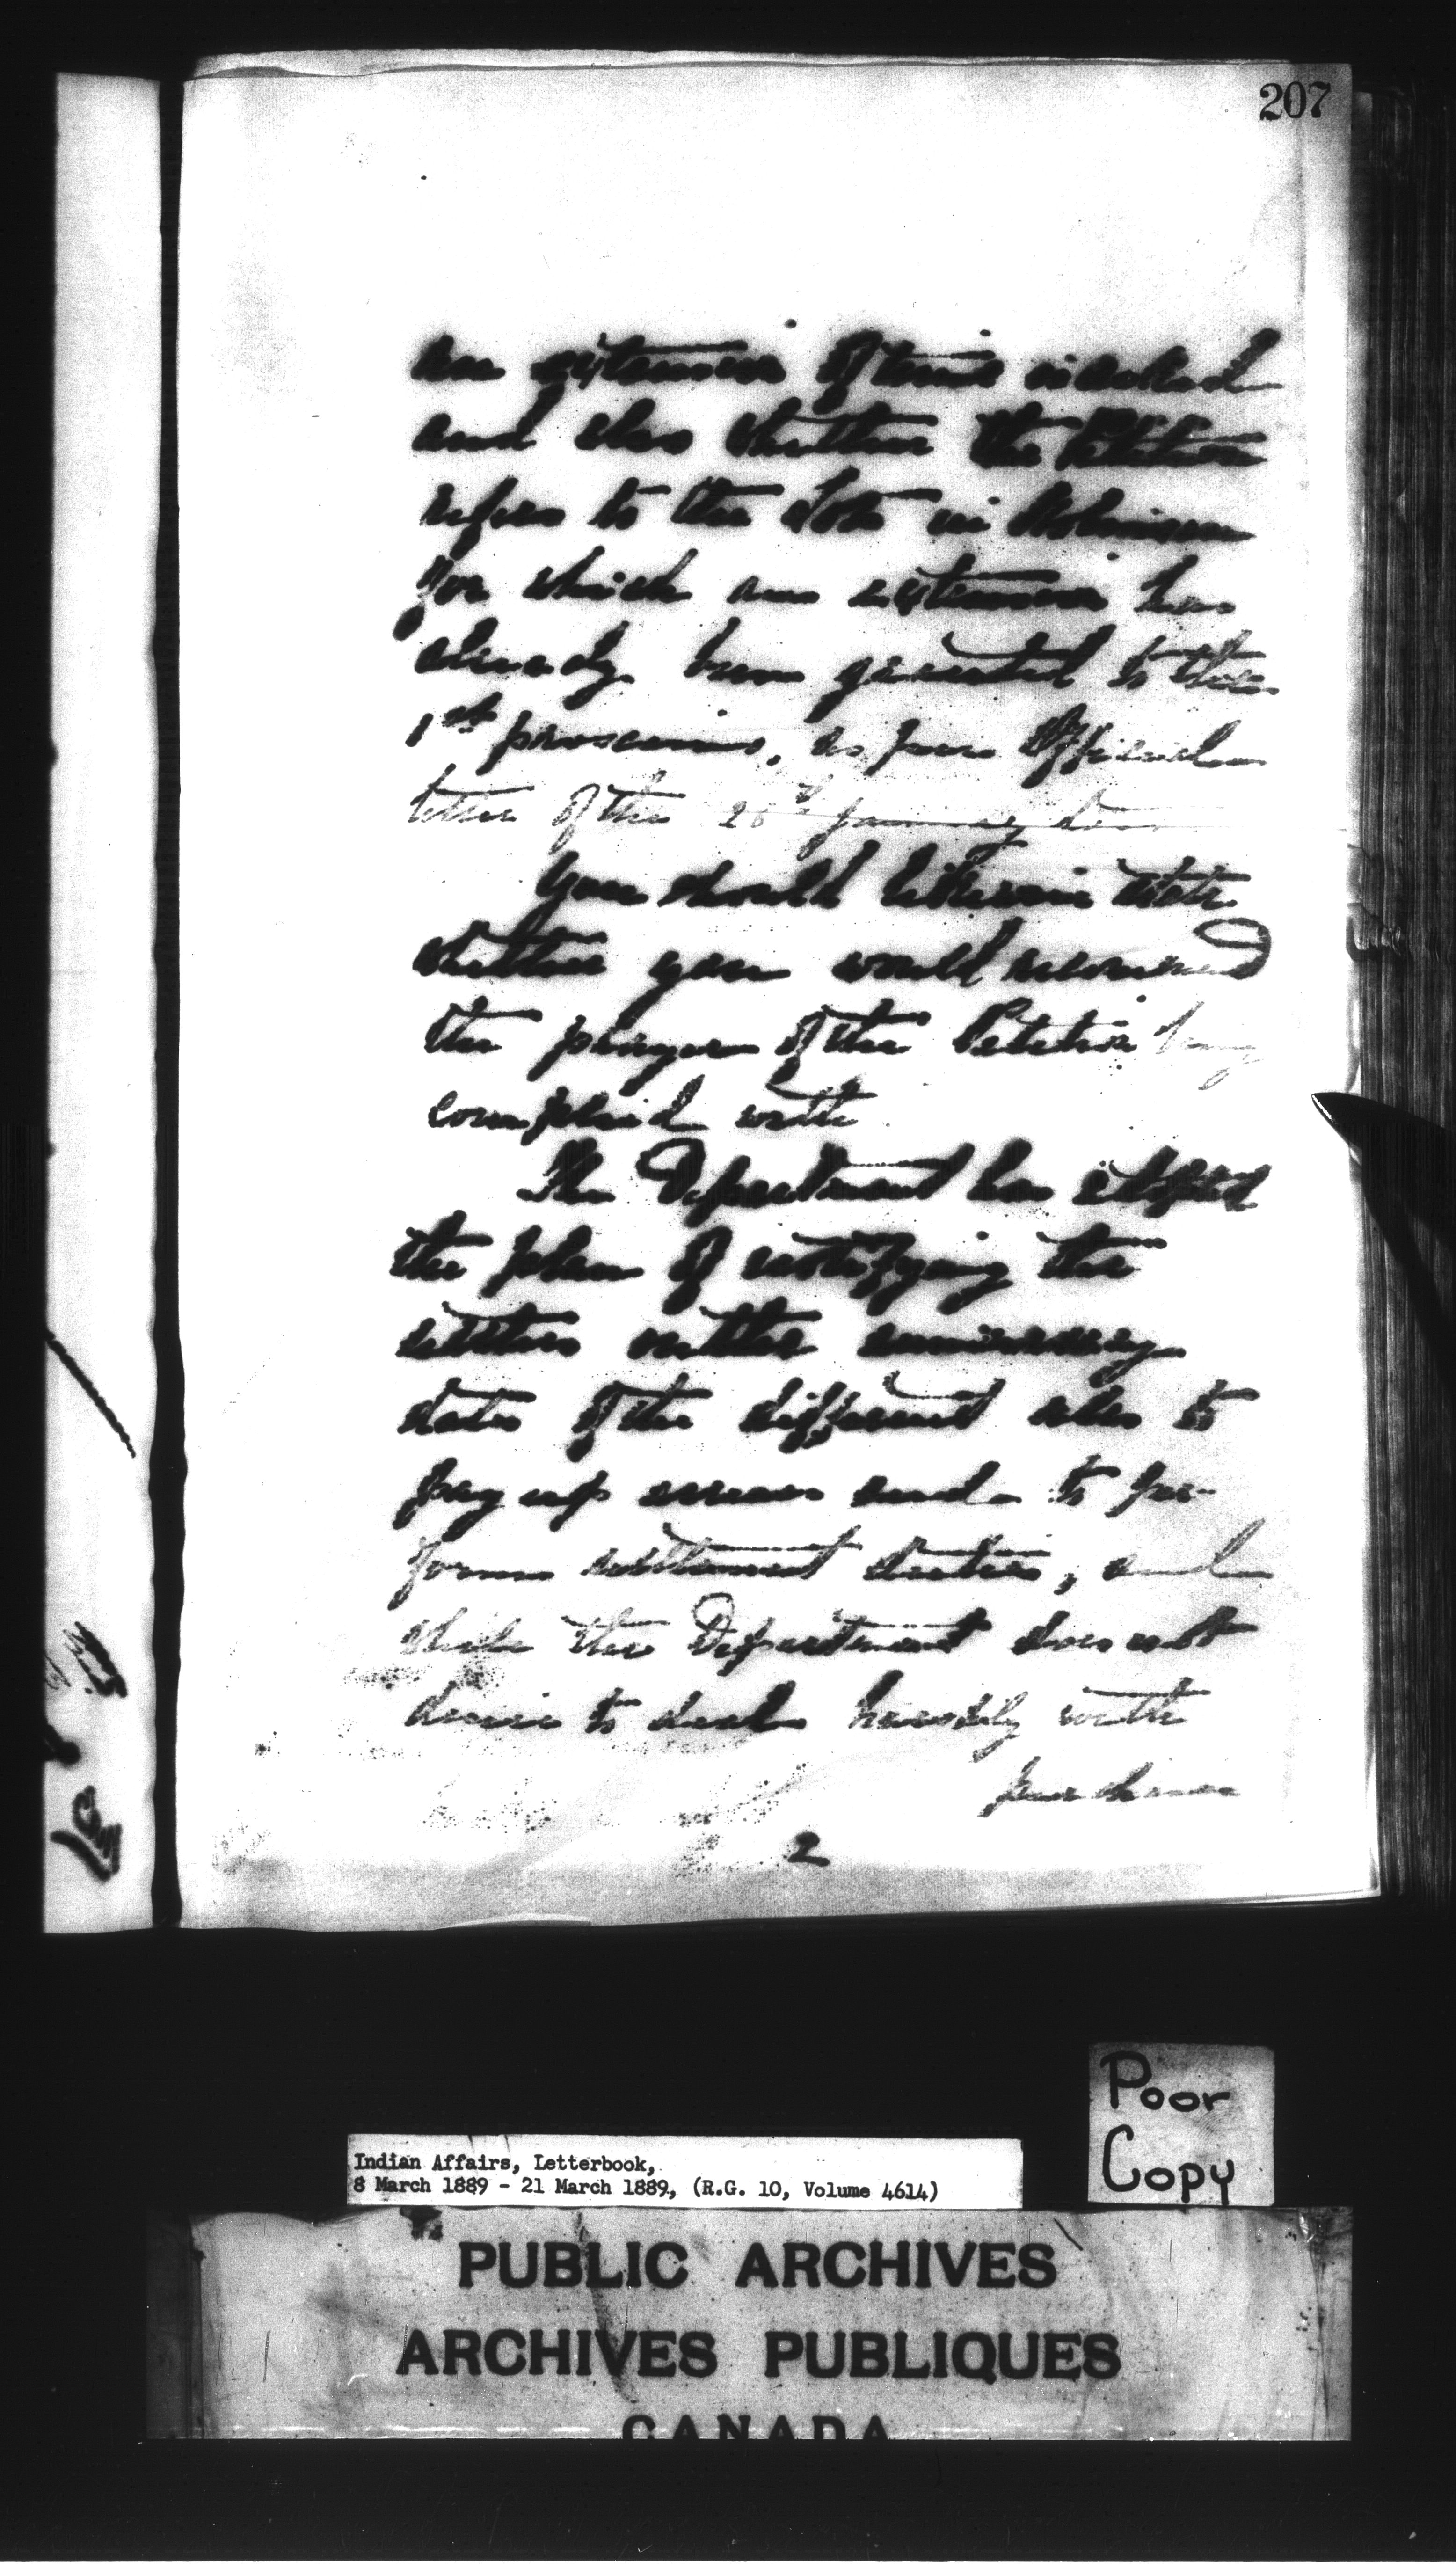 207
an extension of time is asked
and also whether the Petition
refers to the lots in Robinson
for which an extension has
already been granted to the
1st proximo, as per Official
letter of the 26th January
You should likewise state
whether you would recommend
the prayer of the Petition being
complied with
The Department has adopted
the plan of notifying the
settlers on the anniversary
date of the different sales to
pay up arrears and to per-
form settlement duties, and
while the Department does not
desire to deal harshly with
purchasers
2
Poor
Copy
Indian Affairs, Letterbook,
8 March 1889 - 21 March 1889, (R.G. 10, Volume 4614)
PUBLIC ARCHIVES
ARCHIVES PUBLIQUES
CANADA